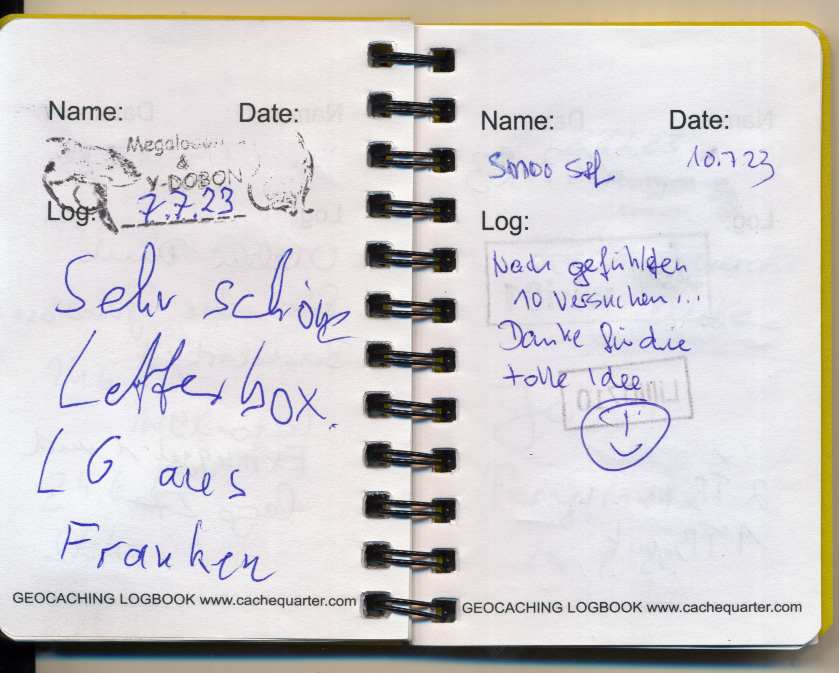 Name: Date:
&
Y-DOBON
Log: 7.7.23
Sehr schöne
Letterbox.
LG aus
Franken
GEOCACHING LOGBOOK www.cachequarter.com
Name: Date:
10.7.23
Log:
Nach gefühlten
10 Versuchen...
Danke für die
tolle Idee
GEOCACHING LOGBOOK www.cachequarter.com